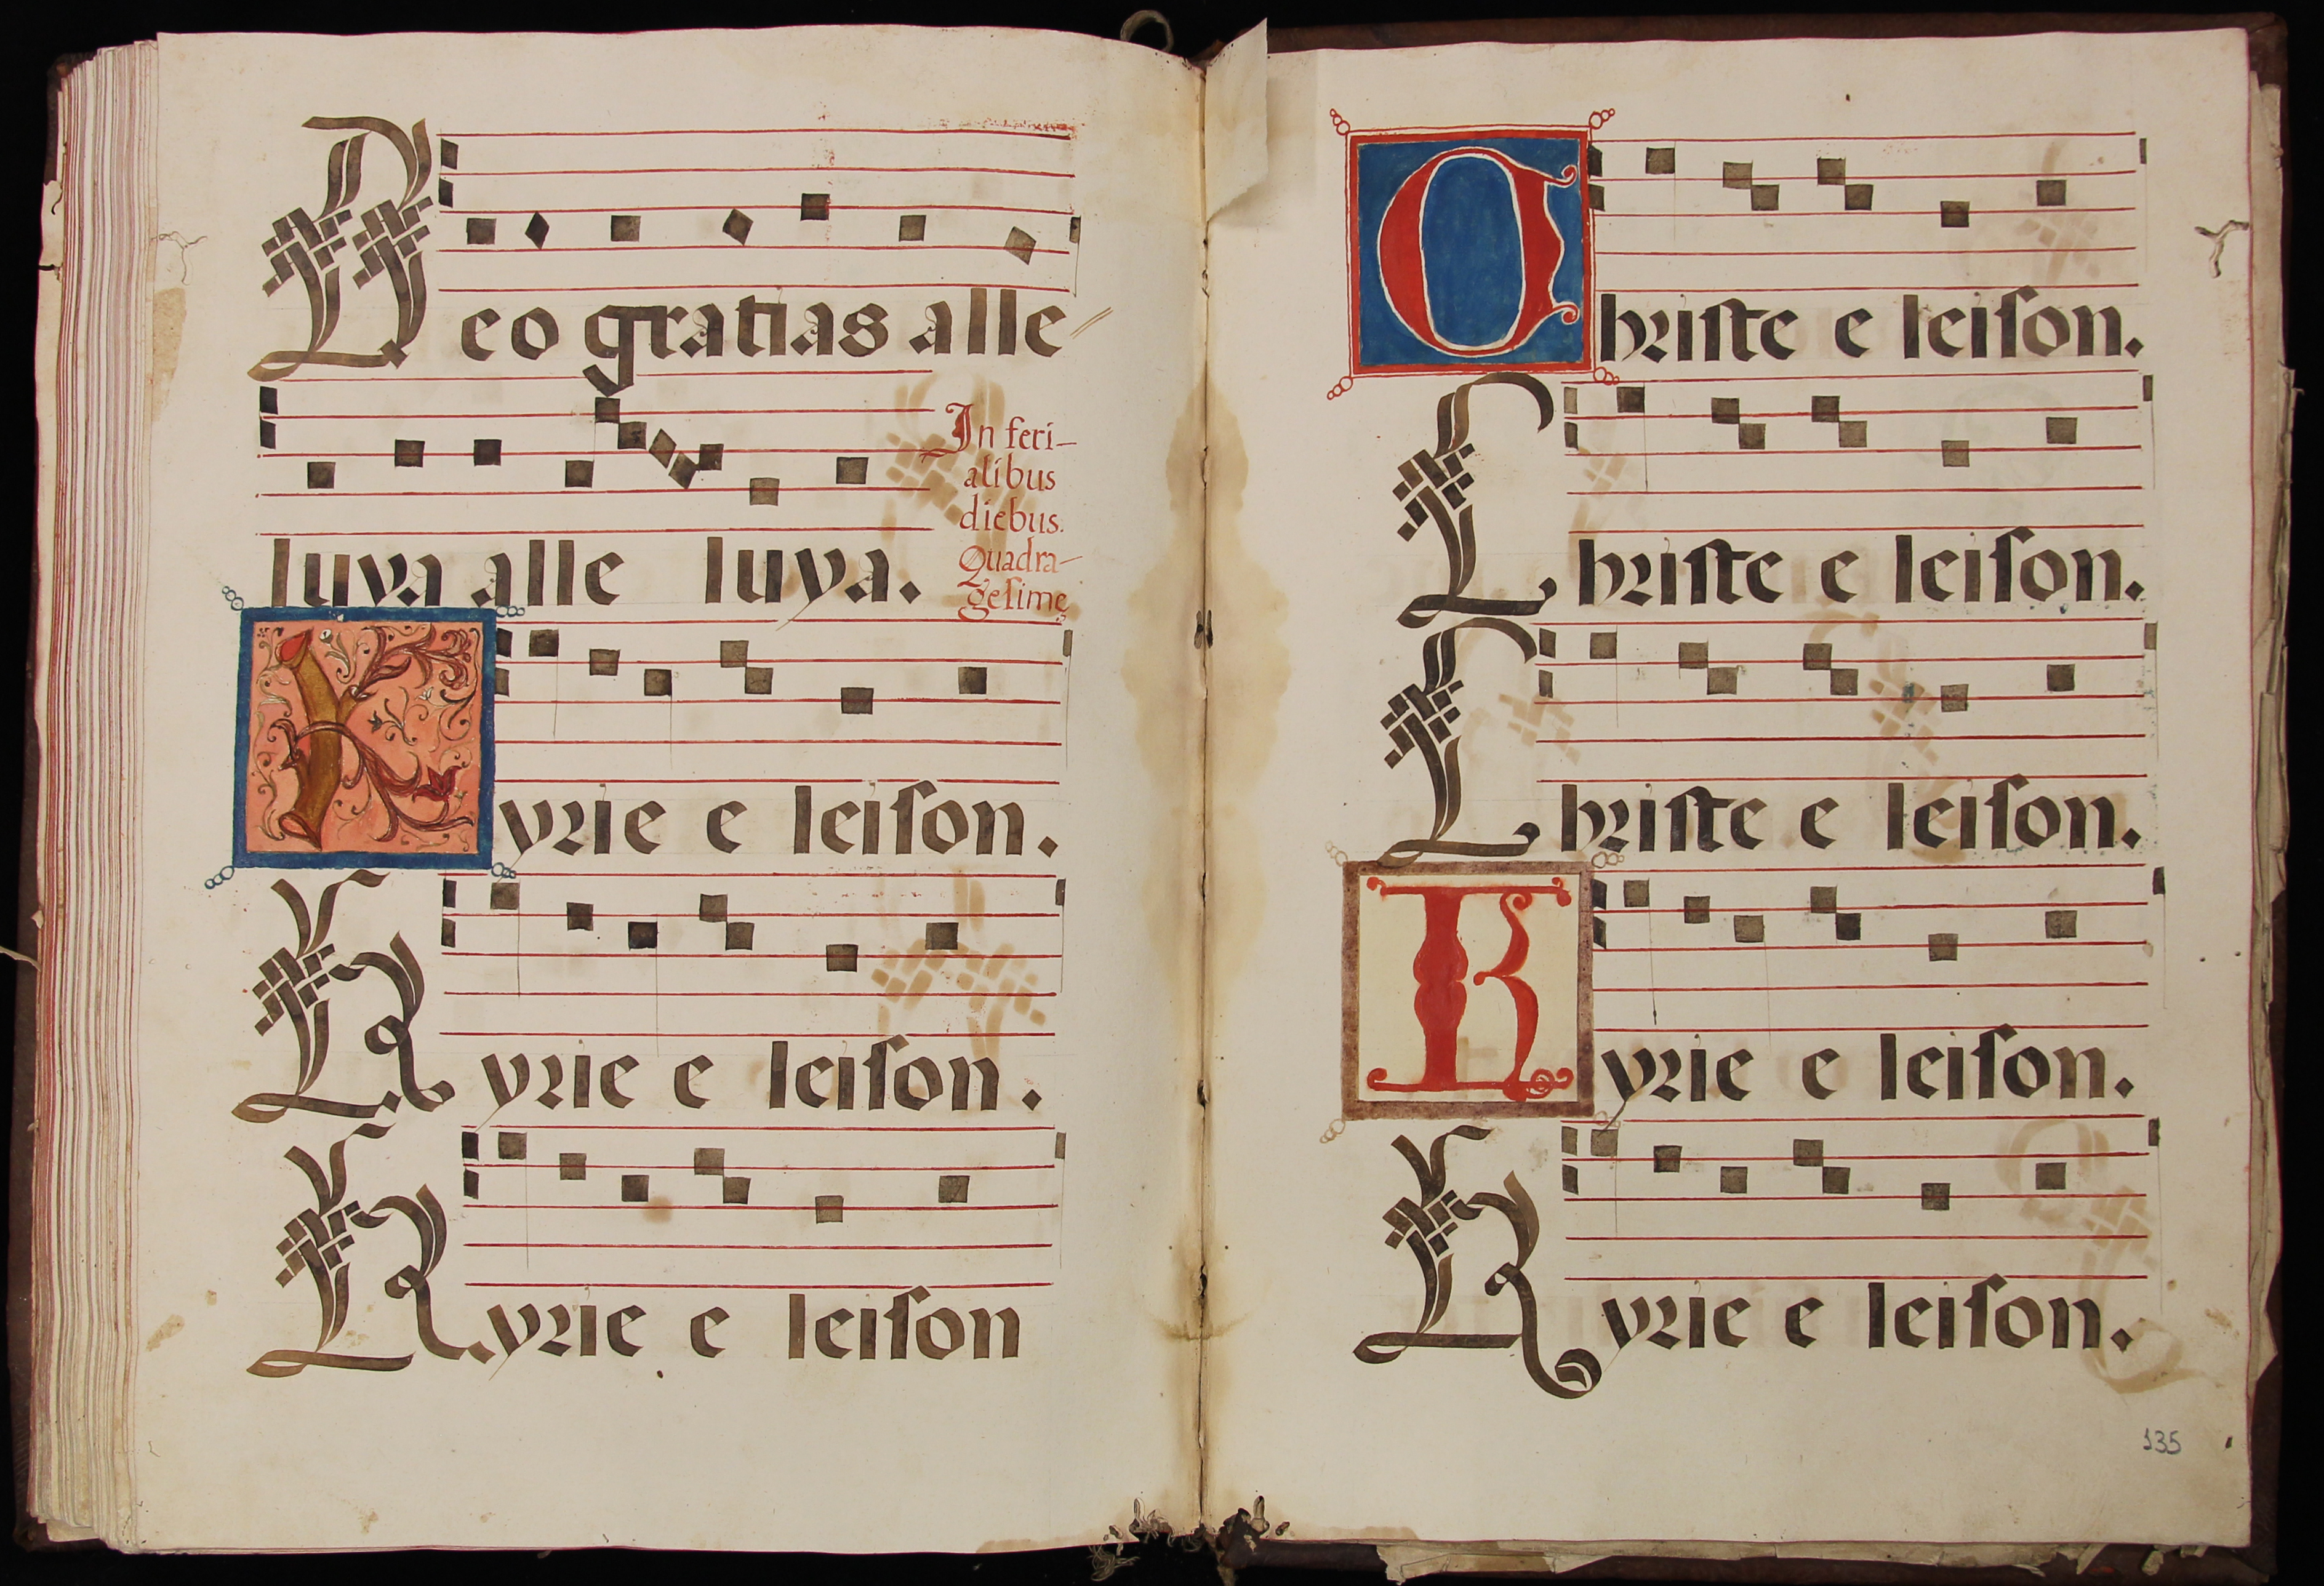 Deo gratias alle
luya alle luya.
In feri-
alibus
diebus.
Quadra-
gesimę
Kyrie e leiſon.
Kyrie e leiſon.
Kyrie e leiſon
Chriſte e leiſon.
Chriſte e leiſon.
Chriſte e leiſon.
Kyrie e leiſon.
Kyrie e leiſon.
135